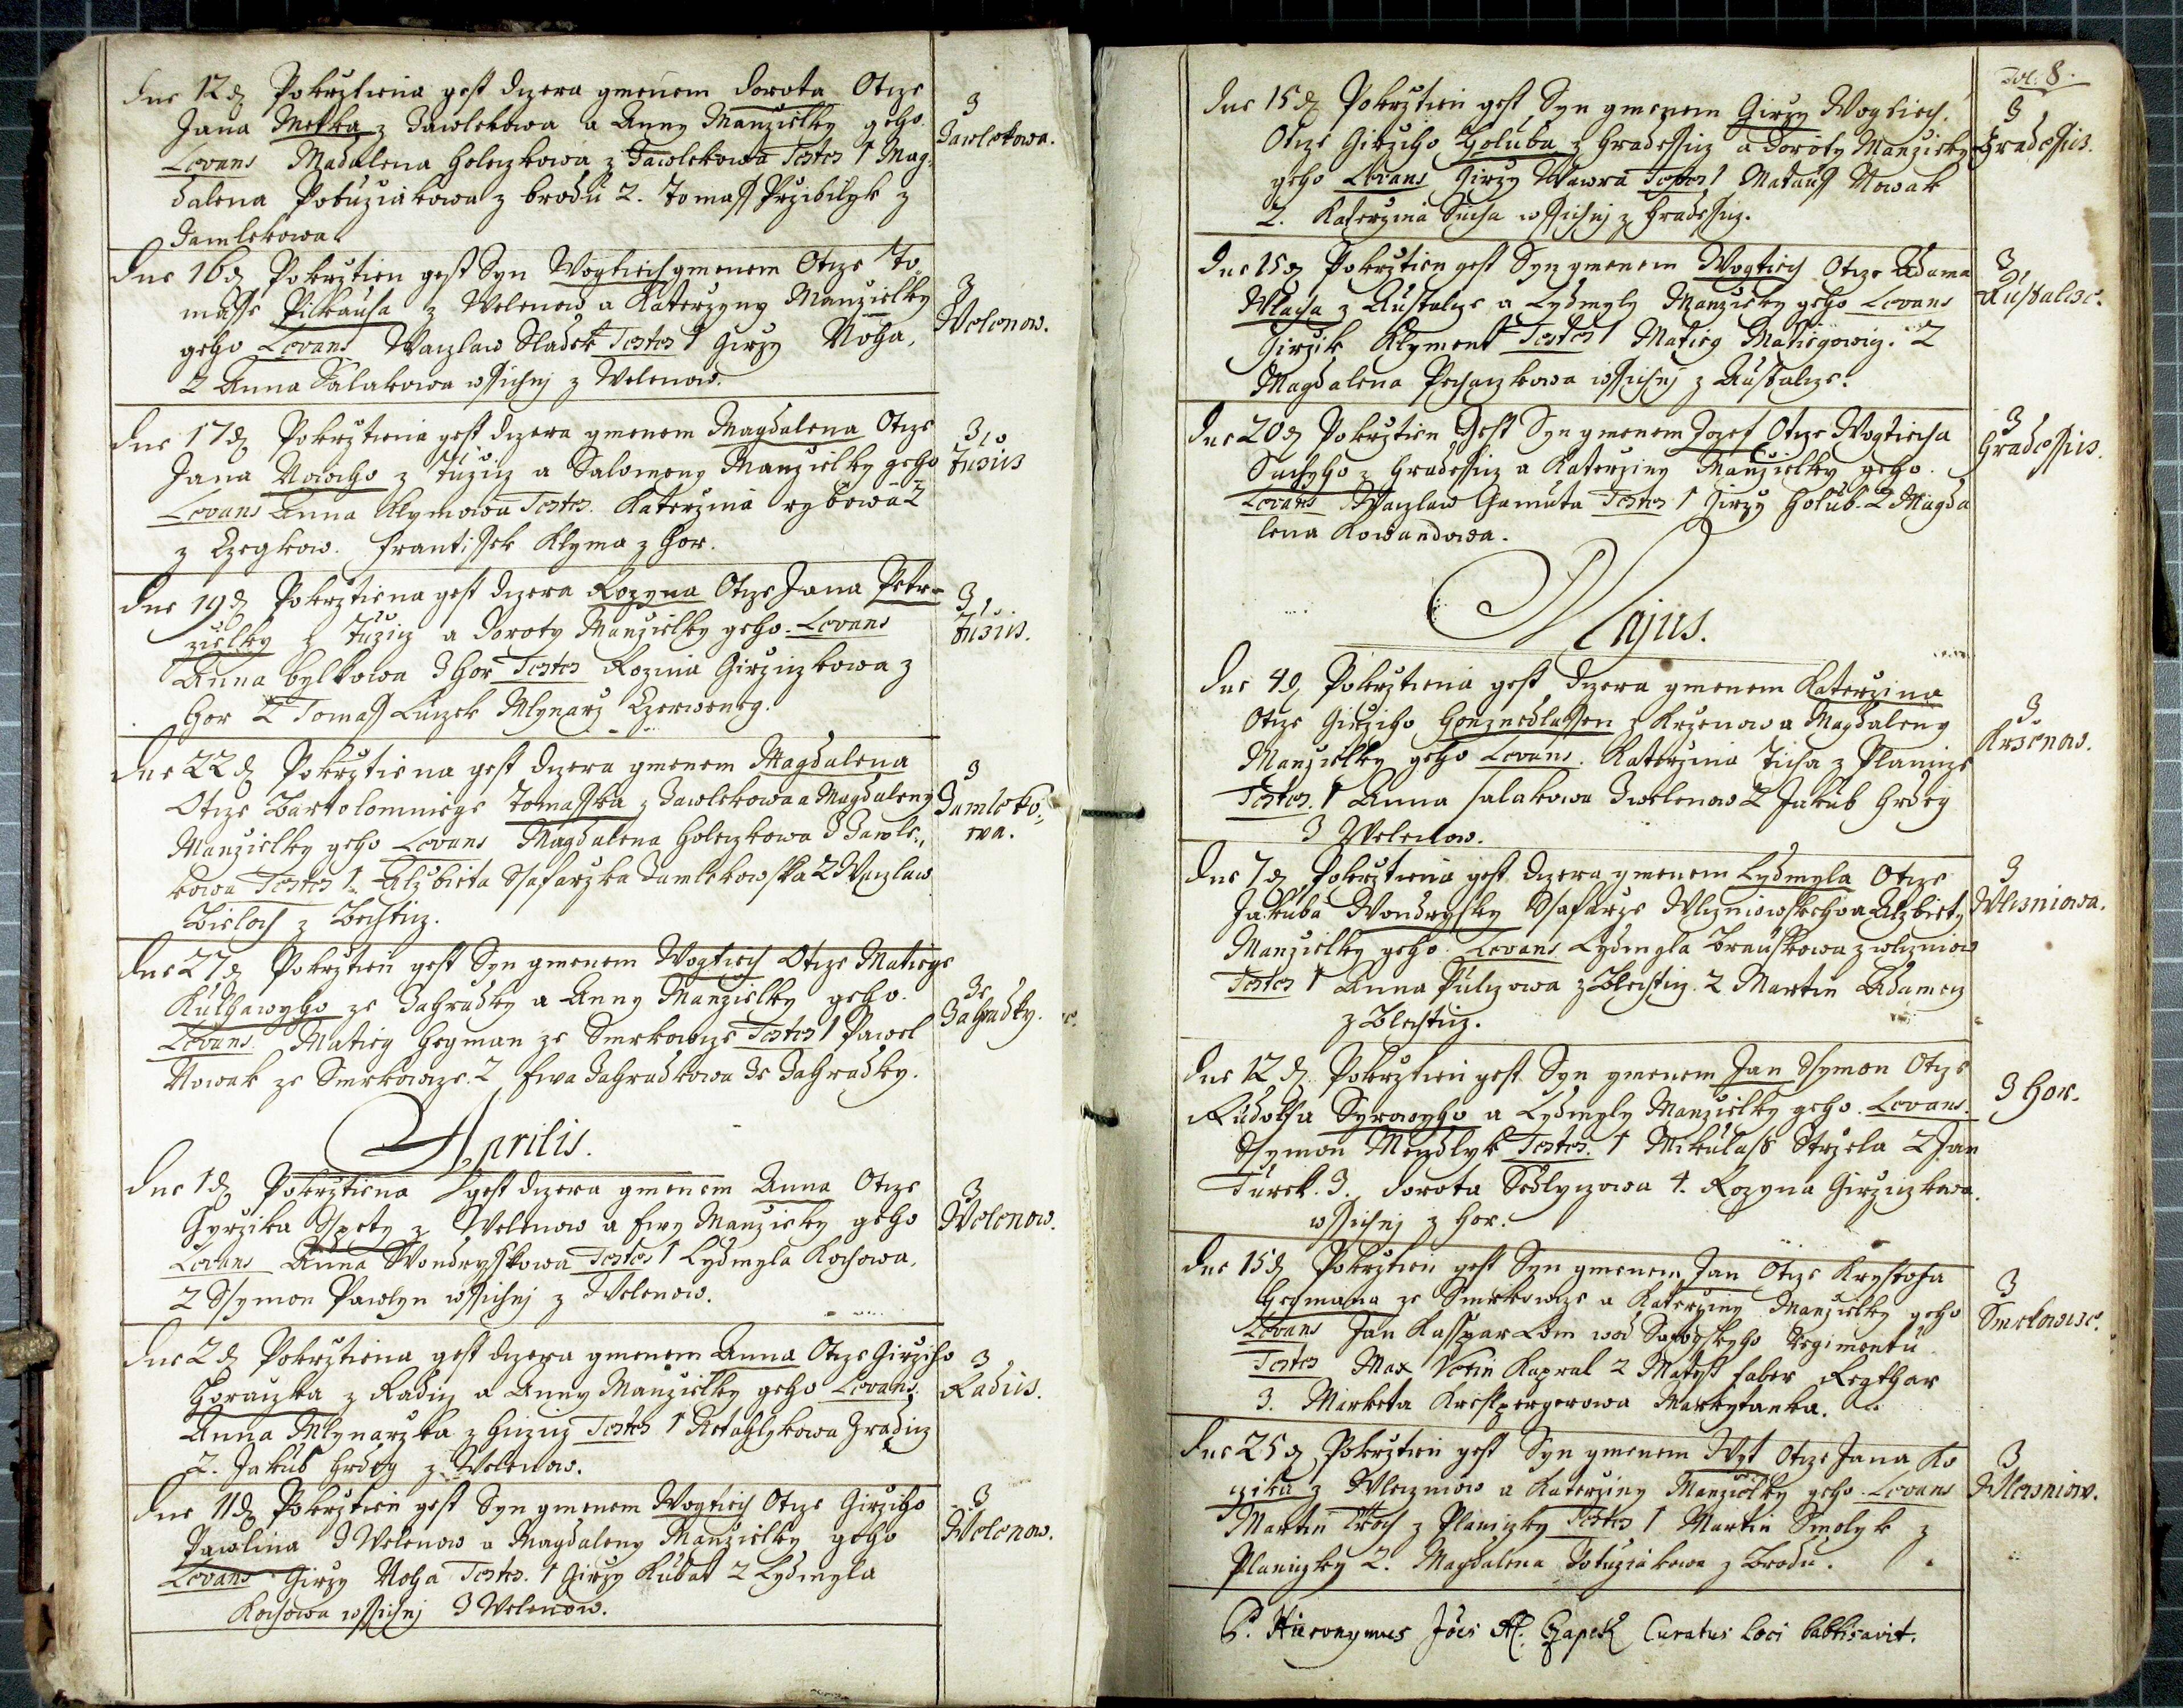 Dne 12 d. Pokrztiena gest dczera gmenem Dorota Otcze
Jana Metka z Zawlekowa a Anny Manzielky geho
Levans Madalena Holeczkowa z Zawlekowa Testes 1 Mag:
dalena Potuziakowa z brodu 2. Tomass Przibilyk z
Zawlekowa.
3
Zawlekowa.
Dne 16 d. Pokrztien gest Syn Wogtiech gmenem Otcze To
masse Pilkausa z Welenow a Katerzyny Manzielky
geho Levans Waczlaw Sladek Testes 1 Girzy Noha,
2 Anna Salakowa wssichnj z Welenow.
3
Welenow.
Dne 17 d. Pokrztiena gest dczera gmenem Magdalena Otcze
Jana Noweho z Tuzicz a Salomeny Manzielky geho
Levans Anna Klymowa Testes. Katerzina rybowa 2
z Czegkow. Frantissek Klyma z Hor.
3
Tuzicz
Dne 19 d. Pokrztiena gest dczera Rozyna Otcze Jana Petr-
zielky z Tuzicz a Doroty Manzielky geho. Levans
Anna bylkowa z Hor Testes Rozina Girziczkowa z
Hor 2 Tomass Luczek Mlynarz Czerweney.
3
Tuzicz.
Dne 22 d. Pokrztiena gest dczera gmenem Magdalena
Otcze Bartolomniege Tomasska z Zawlekowa a Magdaleny
Manzielky geho Levans Magdalena Holeczkowa z Zawle:
kowa Testes 1. Alzbieta Ssafarzka Zawlekowska 2 Waczlaw
Bieloch z Bechticz.
3
Zawleko:
wa.
Dne 27 d. Pokrztien gest Syn gmenem Wogtiech Otcze Matiege
Kulhawyho ze Zahradky a Anny Manzielky geho.
Levans. Matieg Hegman ze Smrkowcze Testes 1 Pawel
Nowak ze Smrkowcze. 2 Ewa Zahradkowa ze Zahradky.
Ze
Zahradky.
Aprilis.
Dne 1 d. Pokrztiena gest dczera gmenem Anna Otcze
Gyrzika Sspety z Welenow a Ewy Manzielky geho
Levans Anna Wondrysskowa Testes 1 Lydmyla Kochowa,
2 Ssymon Pawlyn wssichnj z Welenow.
3
Welenow.
Dne 2 d. Pokrztiena gest dczera gmenem Anna Otcze Girziho
Horaczka z Radicz a Anny Manzielky geho Levans.
Anna Mlynarzka z Hniczicz Testes 1 Retahlykowa z radicz
2. Jakub Hrdey z Welenow.
3
Radicz.
Dne 11 d. Pokrztien gest Syn gmenem Wogtiech Otcze Girziho
Pawlina z Welenow a Magdaleny Manzielky geho
Levans Girzy Noha Testes. 1 Girzy Kubat 2 Lydmyla
Kochowa wssichnj z Welenow.
3
Welenow.
Fol. 8.
Dne 15 d. Pokrztien gest Syn gmenem Girzy Wogtiech.
Otcze Girziho Holuba z Hradessicz a Doroty Manzielky
geho Levans Girzy Wawra Testes 1 Matauss Nowak
2. Katerzina Sucha wssichnj z Hradessicz.
3
Hradessicz.
Dne 15 d. Pokrztien gest Syn gmenem Wogtiech Otcze Adama
Wlacha z Austalcze a Lydmyly Manzielky geho Levans
Girzik Klyment Testes 1 Matieg Matiegowicz. 2
Magdalena Pechaczkowa wssichnj z Austalcze.
3
Austalcze.
Dne 20 d. Pokrztien Gest Syn gmenem Jozef Otcze Wogtiecha
Suchyho z Hradessicz a Katerziny Manzielky geho.
Levans Waczlaw Hamuta Testes 1 Girzy Holub. 2 Magda
lena Kowandowa.
3
Hradessicz.
Majus.
Dne 4 d. Pokrztiena gest dczera gmenem Katerzina
Otcze Girziho Honznedlassen z Krzenow a Magdaleny
Manzielky geho Levans. Katerzina Ticha z Planicze
Testes. 1 Anna salakowa z Welenow 2 Jakub Hrdey
z Welenow.
3
Krzenow.
Dne 7 d. Pokrztiena gest dczera gmenem Lydmyla Otcze
Jakuba Wondrysky Ssafarze Wlczniowskeho a Alzbiety
Manzielky geho. Levans Lydmyla Brausskowa z wlczniow
Testes 1 Anna Pulczowa z Blechticz. 2 Martin Adamecz
z Blechticz.
3
Wlczniowa.
Dne 12 d. Pokrztien gest Syn gmenem Jan Ssymon Otcze
Rudolfa Syrowyho a Lydmyly Manzielky geho. Levans.
Ssymon Mendlyk Testes. 1 Mikulass Strzela 2 Jan
Turek. 3. Dorota Sedlyczowa 4. Rozyna Girziczkowa.
wssichnj z Hor.
3 Hor.
Dne 15 d. Pokrztien gest Syn gmenem Jan Otcze Krystofa
Hegmana ze Smrkowcze a Katerziny Manzielky geho
Levans Jan Kasspar Lom wod Regimentu
Testes Max Votin Kapral 2 Matyss faber Regthar
3. Marketa Krestpergerowa Markytanka.
3
Smrkowcze.
Dne 25 d. Pokrztien gest Syn gmenem Wyt Otcze Jana Ko
czika z Wlczniow a Katerziny Manzielky geho. Levans
Martin Troch z Planiczky Testes 1 Martin Smolyk z
Planiczky 2. Magdalena Potuziakowa z Brodu.
3
Wlczniow.
P. Hieronymus Jois Czapek Curatus loci babtisavit.